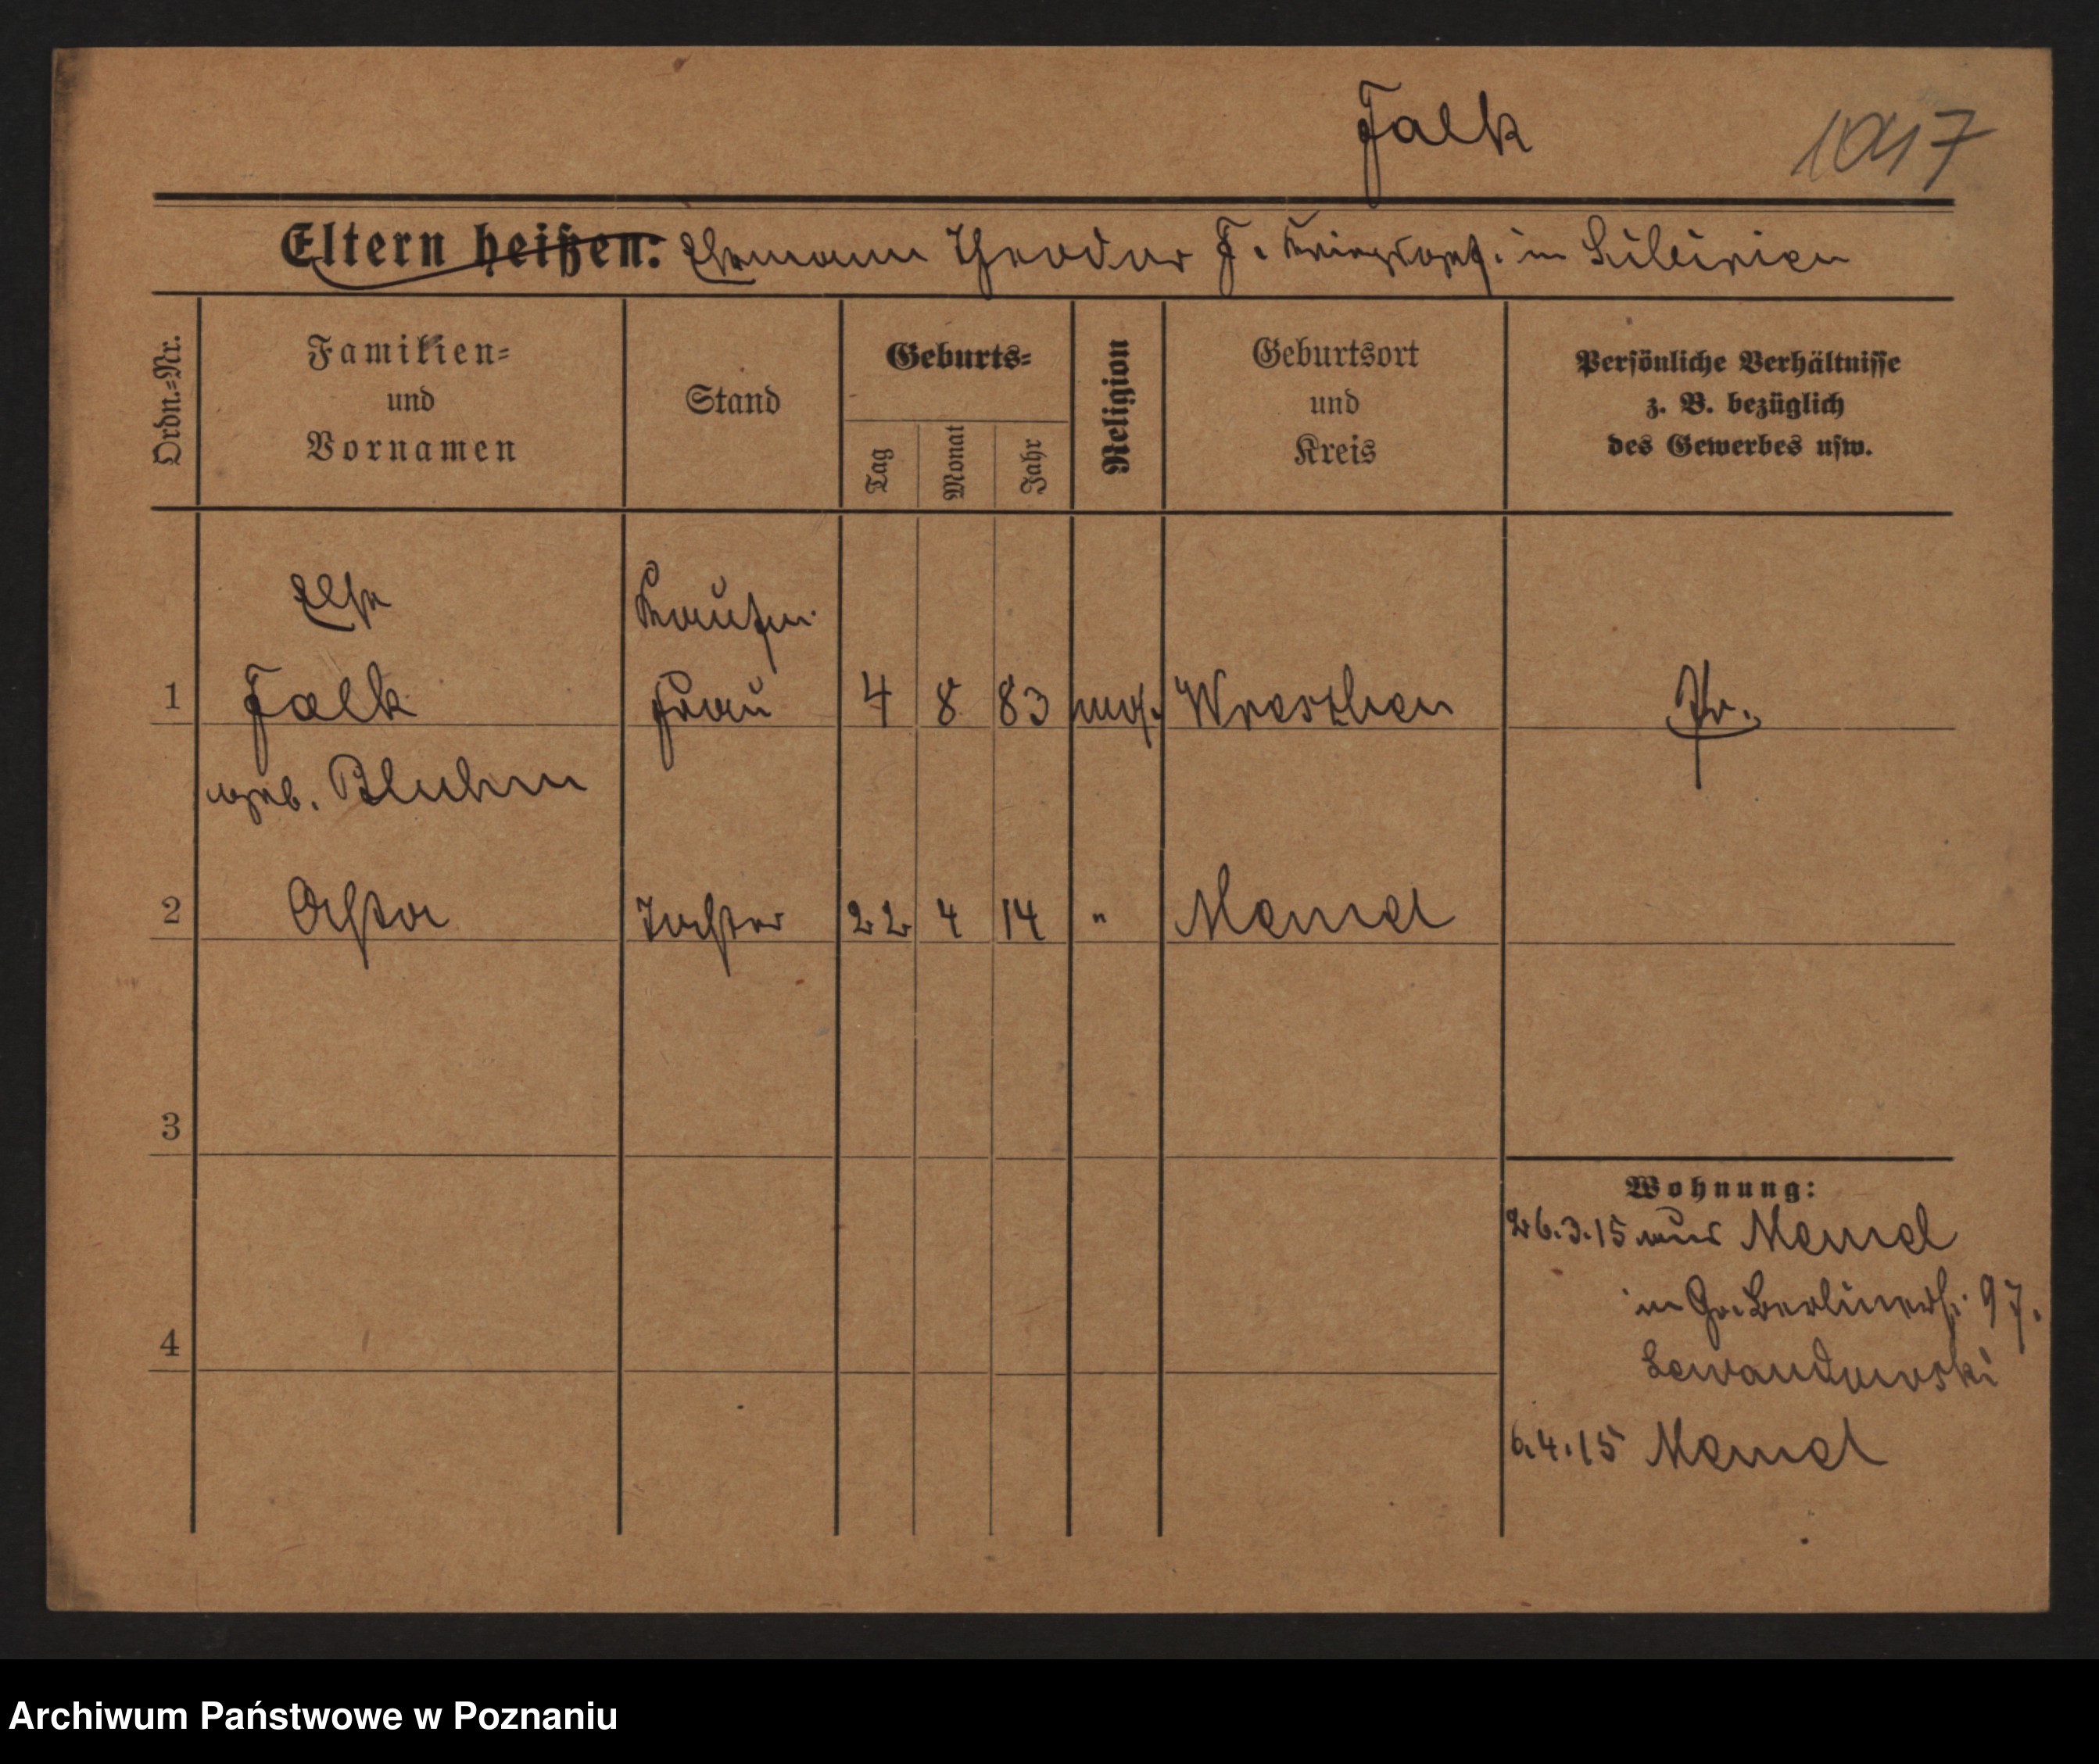 Falk
1017
Eltern heißen: Ehemann Theodor F. Kriegsgef. in Sibirien
Ordn.-Nr.
Familien-
und
Vornamen
Stand
Geburts-
Tag
Monat
Jahr
Religion
Geburtsort
und
Kreis
Persönliche Verhältnisse
z. B. bezüglich
des Gewerbes usw.
Else
Kaufm.
1 Falk Frau 4 8 83 mos. Wreschen Pr.
geb. Bluhm
2 Tochter 22 4 14 " Memel
3
Wohnung:
26.3.15 aus Memel
in Gr. Berlinerstr. 97.
4
Lewandowski
6.4.15 Memel
Archiwum Państwowe w Poznaniu